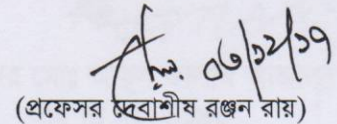 ০৬/১২/১৭
(প্রফেসর দেবাশীষ রঞ্জন রায়)